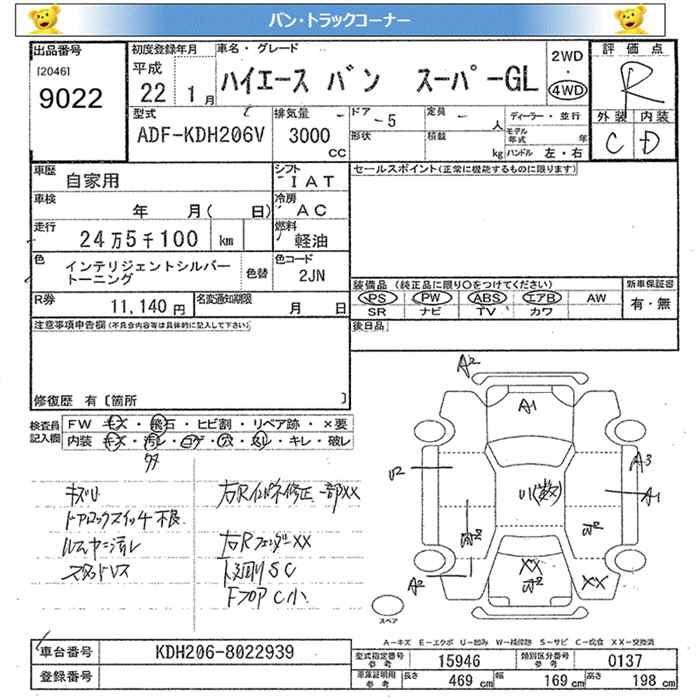 バン・トラックコーナー
出品番号 初度登録年月 車名・グレード 評価点
[2046] 平成 ハイエース バン スーパーGL 2WD ・ 4WD R
9022 22 1月
型式 排気量 ドア -5 定員 - 人 ディーラー・並行 外装 内装
ADF-KDH206V 3000 CC 形状 積載 kg モデル年式 年 C D
ハンドル 左・右
車歴 自家用 シフト IAT セールスポイント(正常に機能するものに限ります)
車検 年 月( 日) 冷房 AC
走行 24万5千100 km 燃料 軽油
色 インテリジェントシルバー トーニング 色替 色コード 2JN
装備品 (純正品に限り○をつけてください) 新車保証書
PS PW ABS エアB AW 有・無
SR ナビ TV カワ
R券 11,140 円 名変通知期限 月 日
後日品
注意事項申告欄(不具合内容等は具体的に記入して下さい)
修復歴 有 [箇所 ]
検査員 記入欄 FW キズ・飛石・ヒビ割・リペア跡・×要
内装 キズ・汚レ・コゲ・穴・スレ・キレ・破レ
キズU
ドアロックスイッチ不良
ルームヤニ汚レ
スタッドレス
右Rインパネ修正 一部XX
右RフェンダーXX
下廻りSC
FフロアC小
A2
A1
A3
U2
A1
A2
XX
XX
スペア
A-キズ E-エクボ U-凹み W-補修跡 S-サビ C-腐食 XX-交換済
車台番号 KDH206-8022939
登録番号
型式指定番号 参考 15946 類別区分番号 参考 0137
車庫証明用 参考 長さ 469 cm 幅 169 cm 高さ 198 cm